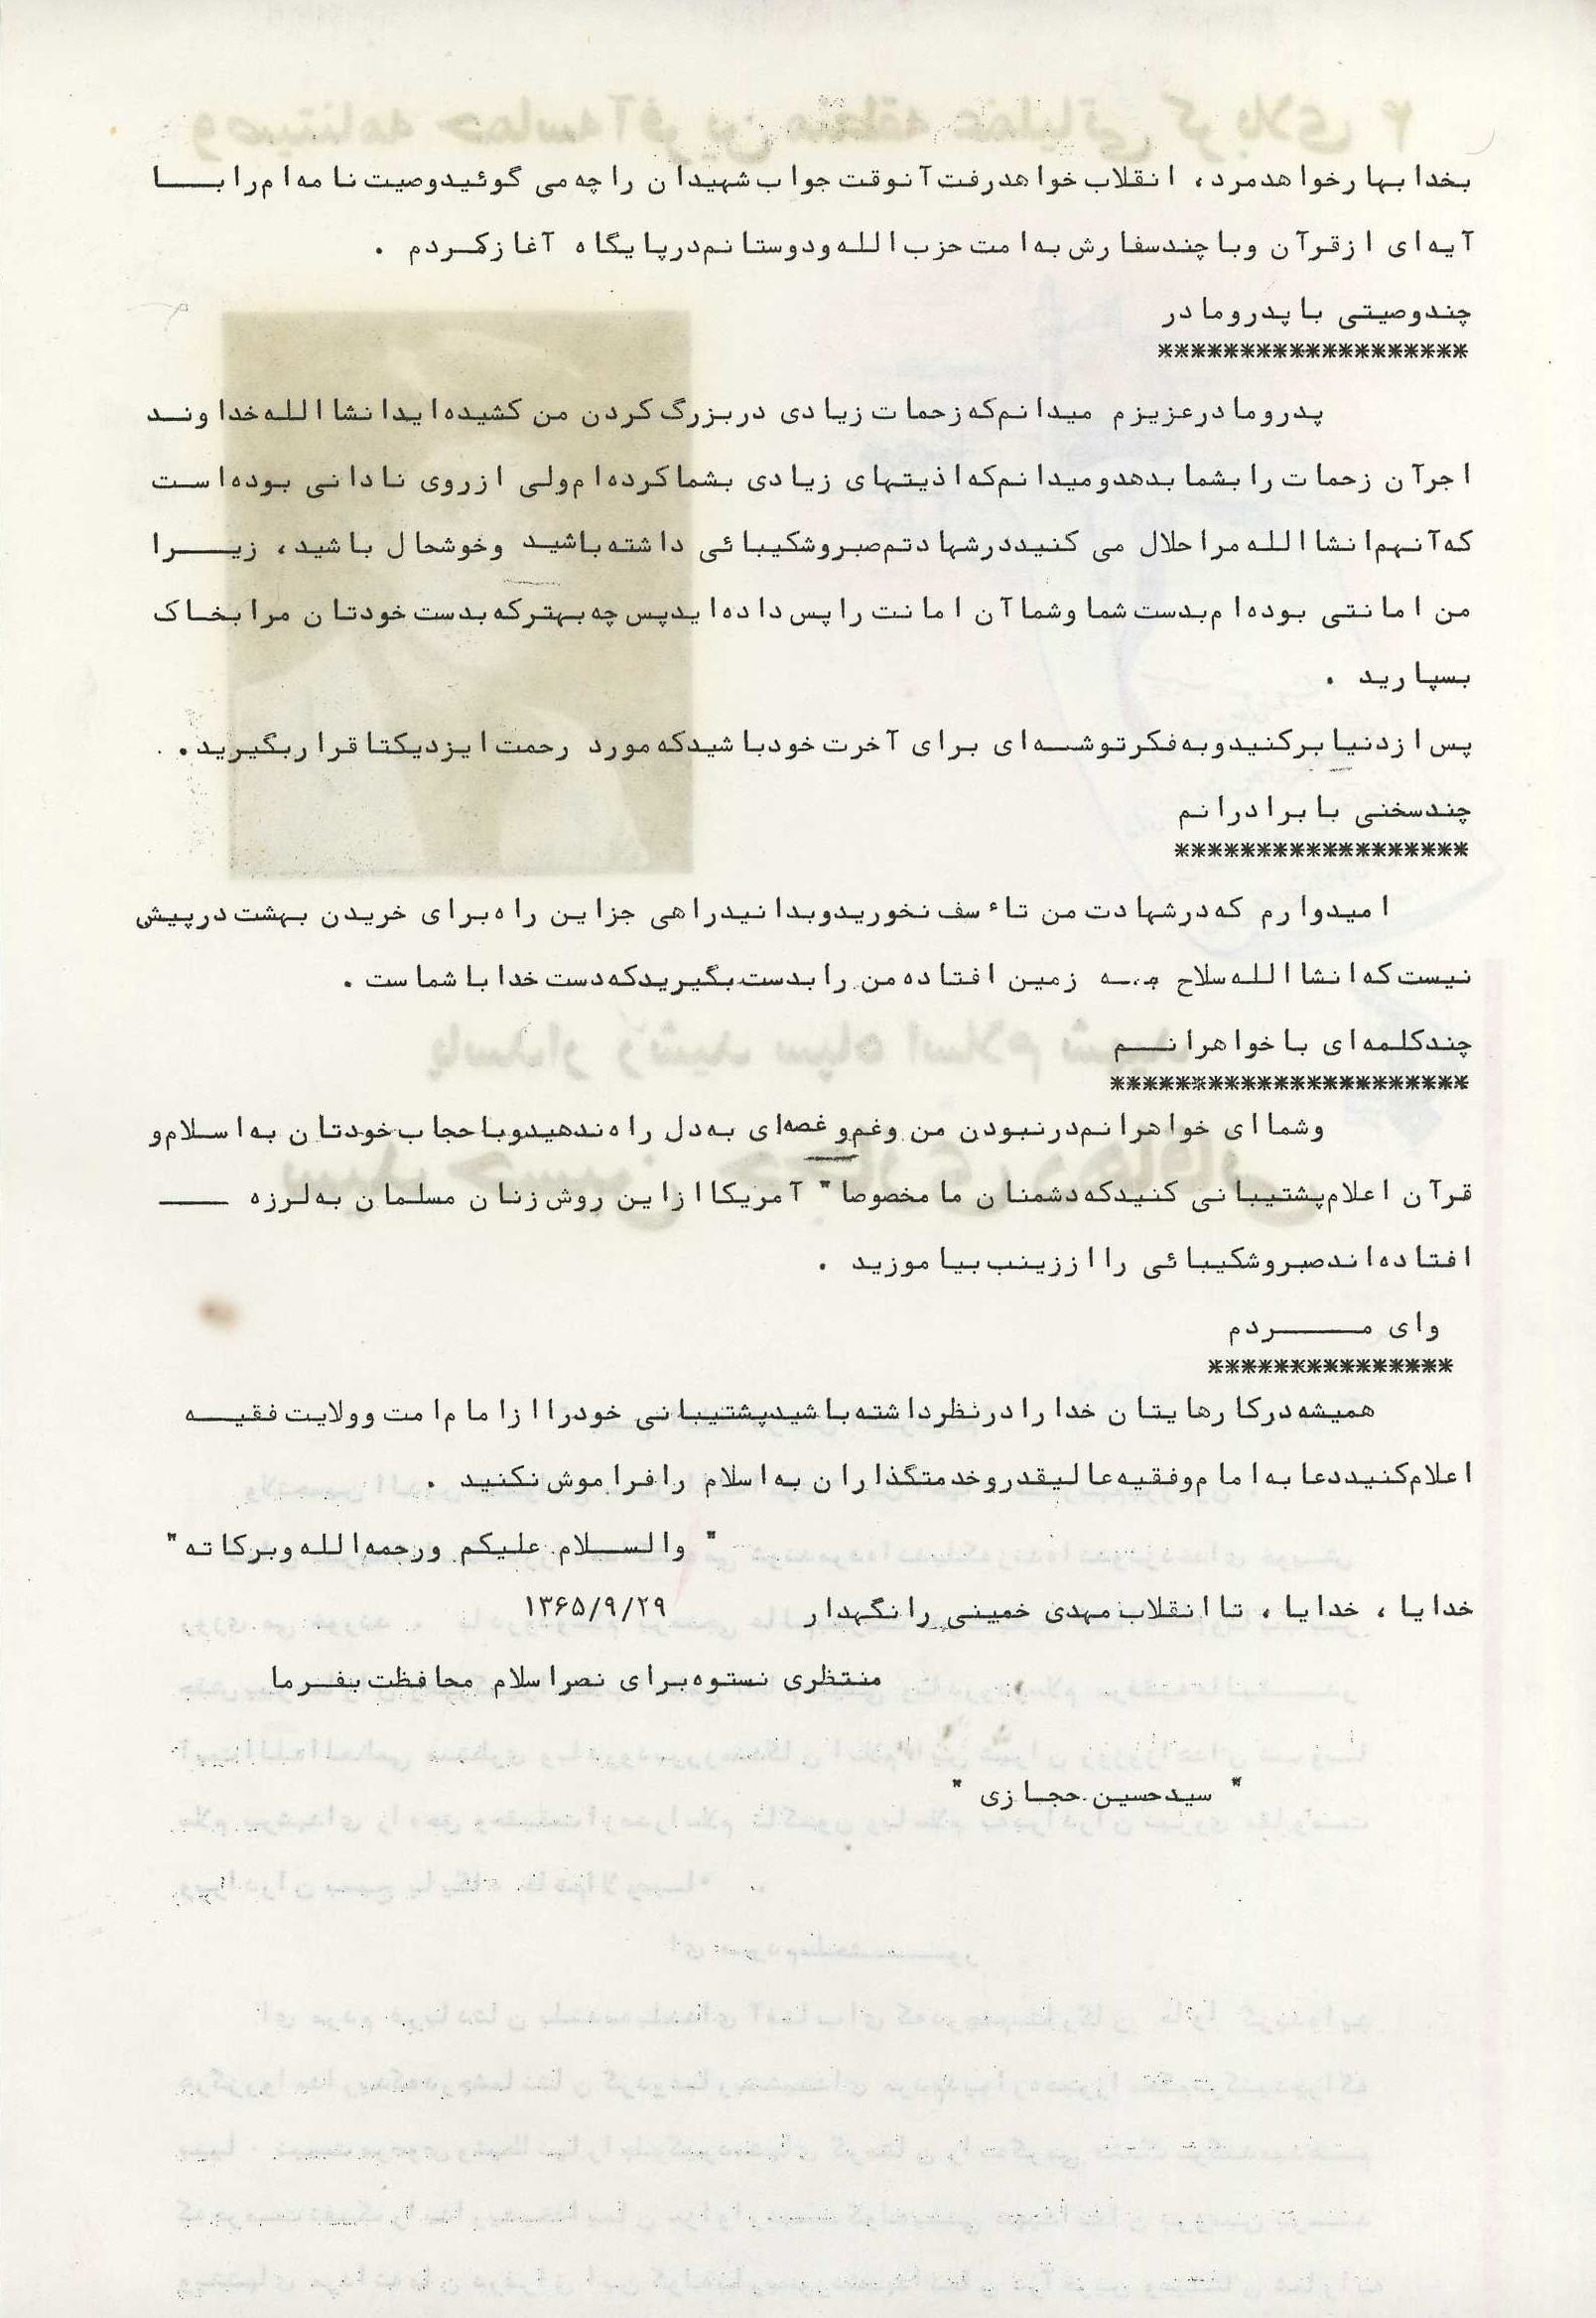 بخدا بهار خواهد مرد، انقلاب خواهد رفت آنوقت جواب شهیدان را چه می گوئید وصیت نامه ام را با
آیه ای از قرآن و با چند سفارش به امت حزب الله و دوستانم در پایگاه آغاز کردم .
چند وصیتی با پدر و مادر
*******************
پدر و مادر عزیزم میدانم که زحمات زیادی در بزرگ کردن من کشیده اید انشاالله خداوند
اجر آن زحمات را بشما بدهد و میدانم که اذیتهای زیادی بشما کرده ام ولی از روی نادانی بوده است
که آنهم انشاالله مرا حلال می کنید در شهادتم صبر و شکیبائی داشته باشید و خوشحال باشید، زیرا
من امانتی بوده ام بدست شما و شما آن امانت را پس داده اید پس چه بهتر که بدست خودتان مرا بخاک
بسپارید .
پس از دنیا بر کنید و به فکر توشه ای برای آخرت خود باشید که مورد رحمت ایزد یکتا قرار بگیرید .
چند سخنی با برادرانم
******************
امیدوارم که در شهادت من تاء سف نخورید و بدانید راهی جز این راه برای خریدن بهشت در پیش
نیست که انشاالله سلاح به زمین افتاده من را بدست بگیرید که دست خدا با شماست .
چند کلمه ای با خواهرانم
**********************
و شما ای خواهرانم در نبودن من و غم و غصه ای به دل راه ندهید و با حجاب خودتان به اسلام و
قرآن اعلام پشتیبانی کنید که دشمنان ما مخصوصا" آمریکا از این روش زنان مسلمان به لرزه ــــ
افتاده اند صبر و شکیبائی را از زینب بیاموزید .
و ای مردم
***************
همیشه در کارهایتان خدا را در نظر داشته باشید پشتیبانی خود را از امام امت و ولایت فقیه
اعلام کنید دعا به امام و فقیه عالیقدر و خدمتگذاران به اسلام را فراموش نکنید .
" والسلام علیکم و رحمه الله و برکاته "
خدایا ، خدایا ، تا انقلاب مهدی خمینی را نگهدار ۱۳۶۵/۹/۲۹
منتظری نستوه برای نصر اسلام محافظت بفرما
" سید حسین حجازی "